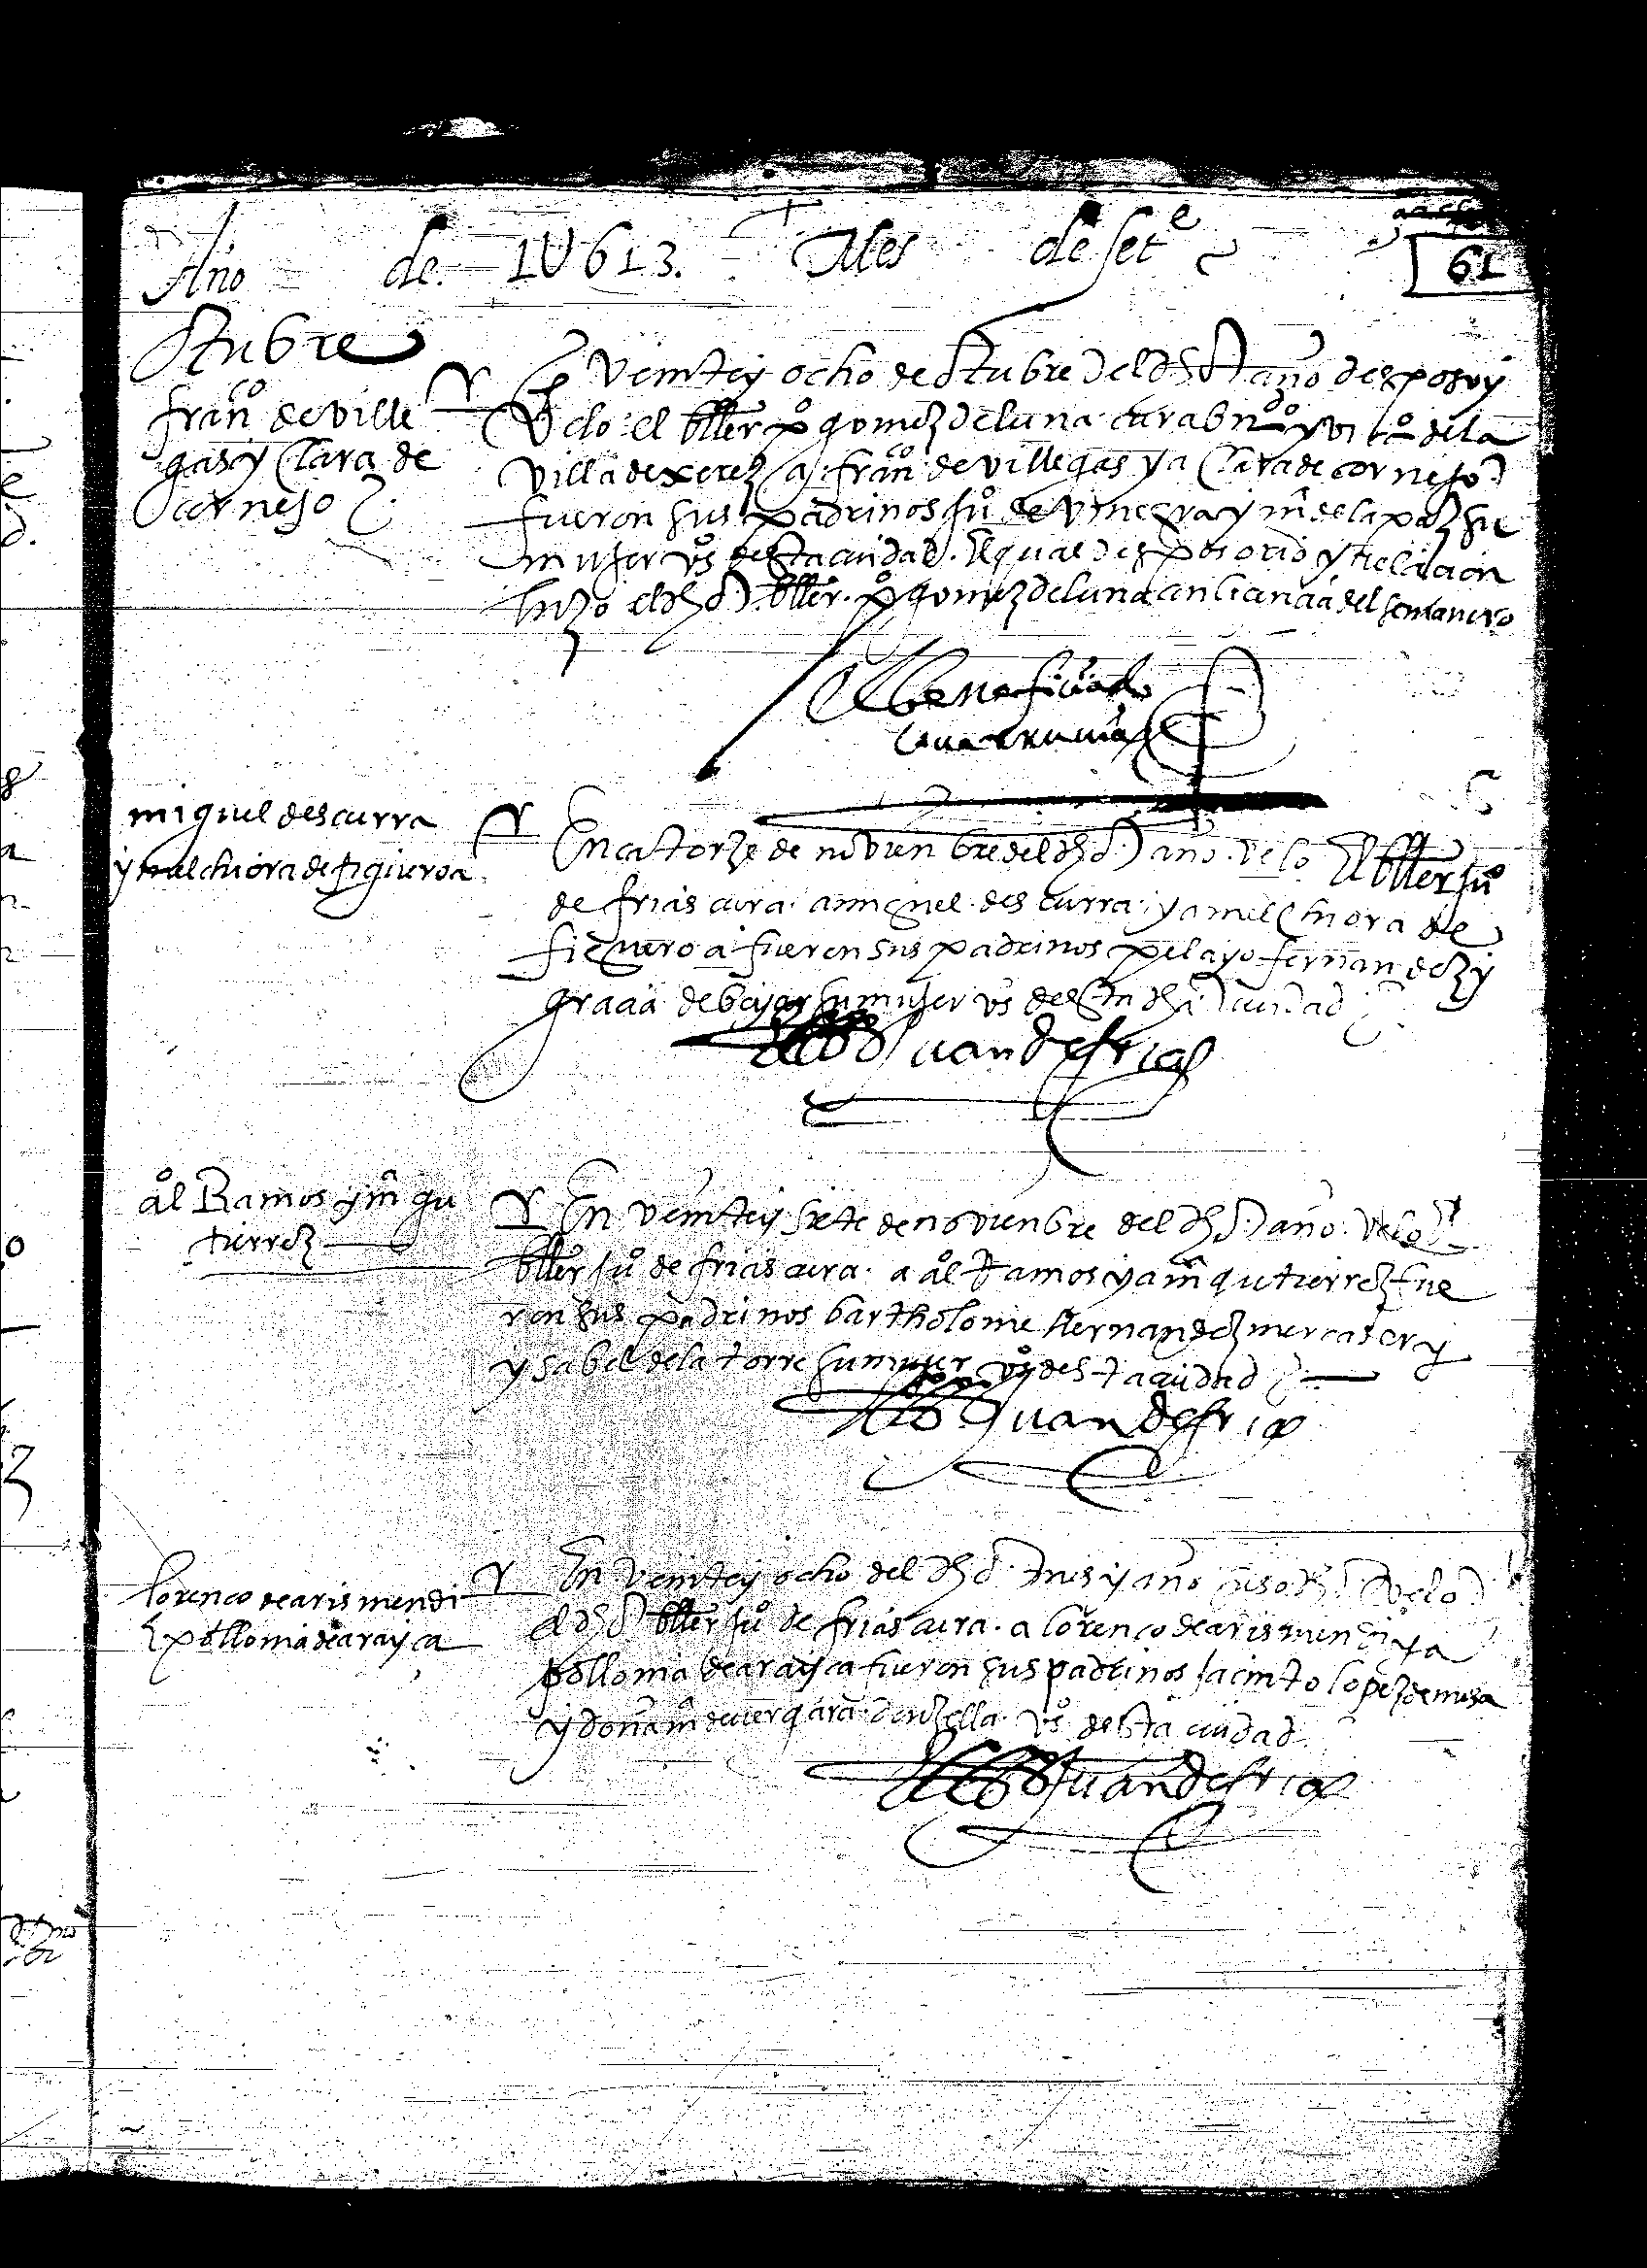 Año de 1U613. Mes de set^e
61
Otubre
fran^co de ville
gas y Clara de
cornejo
En Veinte y ocho de otubre del dho año desposo y
Velo el bller p^o gomez de luna cura b^n^o y vic^o de la
villa de xerez a fran^co de villegas y a Clara de cornejo
fueron sus padrinos ju^o de Vinegra y m^a de la paz su
mujer v^os desta ciudad. El qual desposorio y velacion
hizo el dho bller. p^o gomez de luna en licencia del semanero
El beneficiado
miguel descurra
y malchiora de figueroa
En catorze de novienbre del dho año. Velo El bller ju^o
de frias cura. a miguel descurra. y a melchiora de
figueroa fueron sus padrinos pelayo fernandez y
gracia de bejar su mujer v^os desta dha ciudad
El b^r Juan de frias
al^o Ramos y m^a gu
tierrez
En Veinte y siete de novienbre del dho año. Velo el
bller ju^o de frias cura. a al^o Ramos y a m^a gutierrez fue
ron sus padrinos bartholome hernandez mercader y
ysabel de la torre su mujer v^os desta ciudad
El b^r Juan de frias
lorenco de arismendi
E pollonia de arayca
En Veinte y ocho del dho mes y año Velo
el dho bller ju^o de frias cura. a lorenco de arismendi y a
pollonia de arayca fueron sus padrinos jacinto lopez de mesa
y doña m^a de vergara donzella v^os desta ciudad.
El b^r Juan de frias